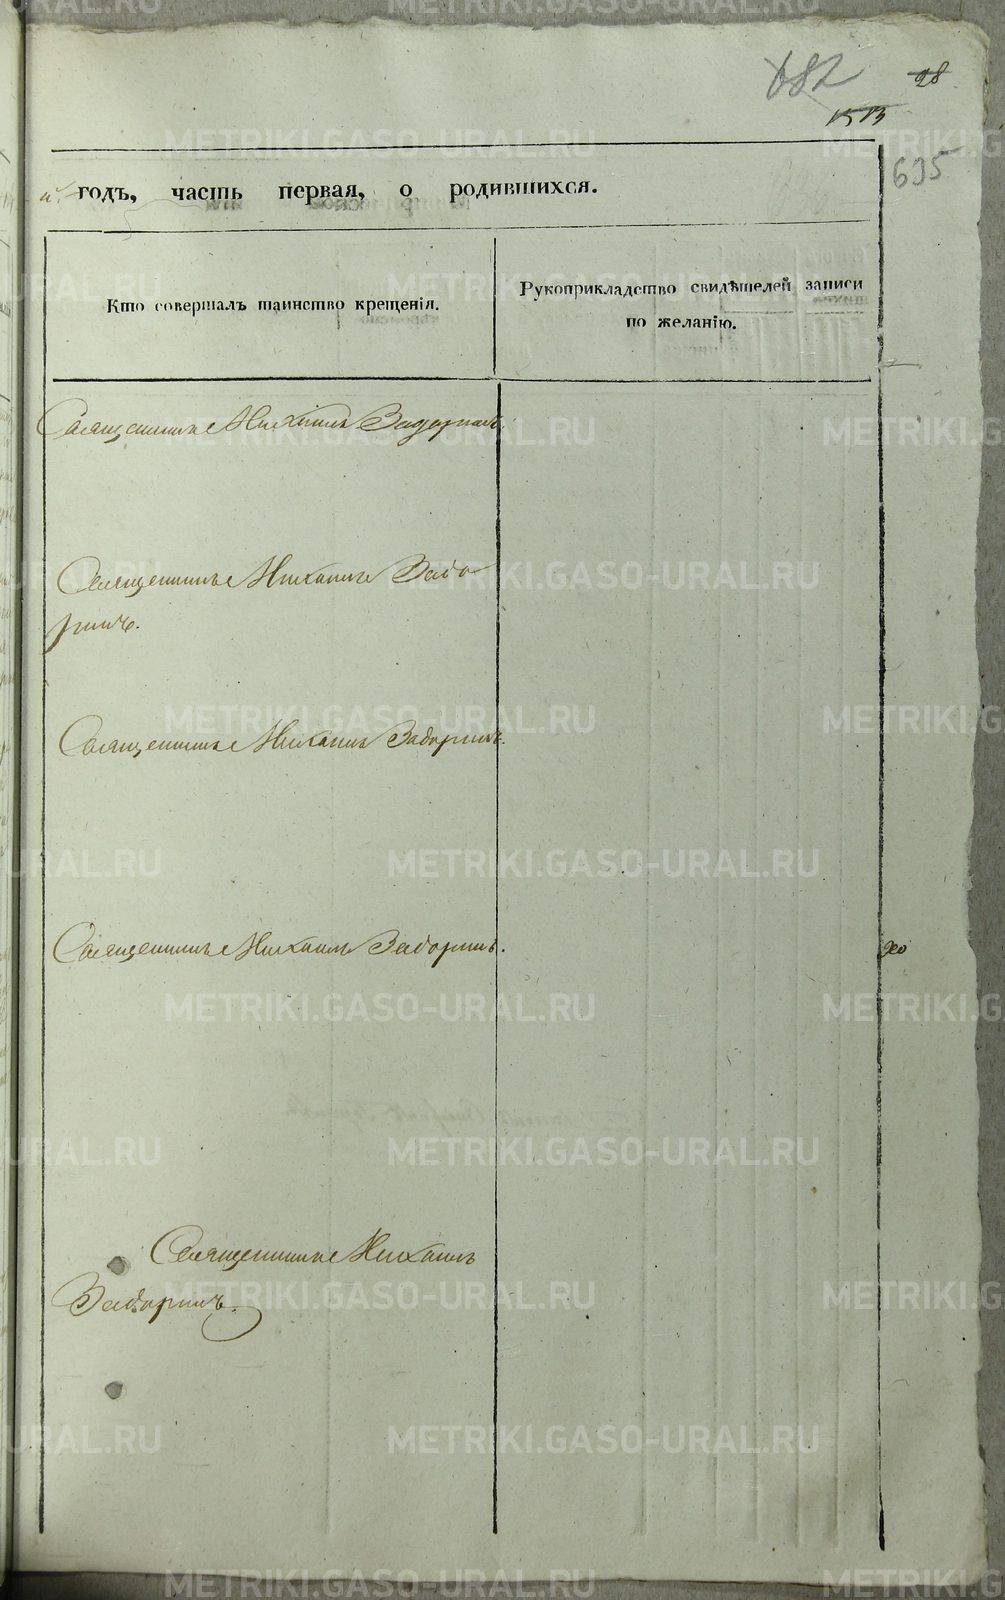 682
28
1513
635
й годъ, часть первая, о родившихся.
Кто совершалъ таинство крещенія.
Рукоприкладство свидѣтелей записи
по желанію.
Священникъ Михаилъ Задоринъ
Священникъ Михаилъ Задо
ринъ.
Священникъ Михаилъ Задоринъ.
Священникъ Михаилъ Задоринъ.
Священникъ Михаилъ
Задоринъ.
METRIKI.GASO-URAL.RU